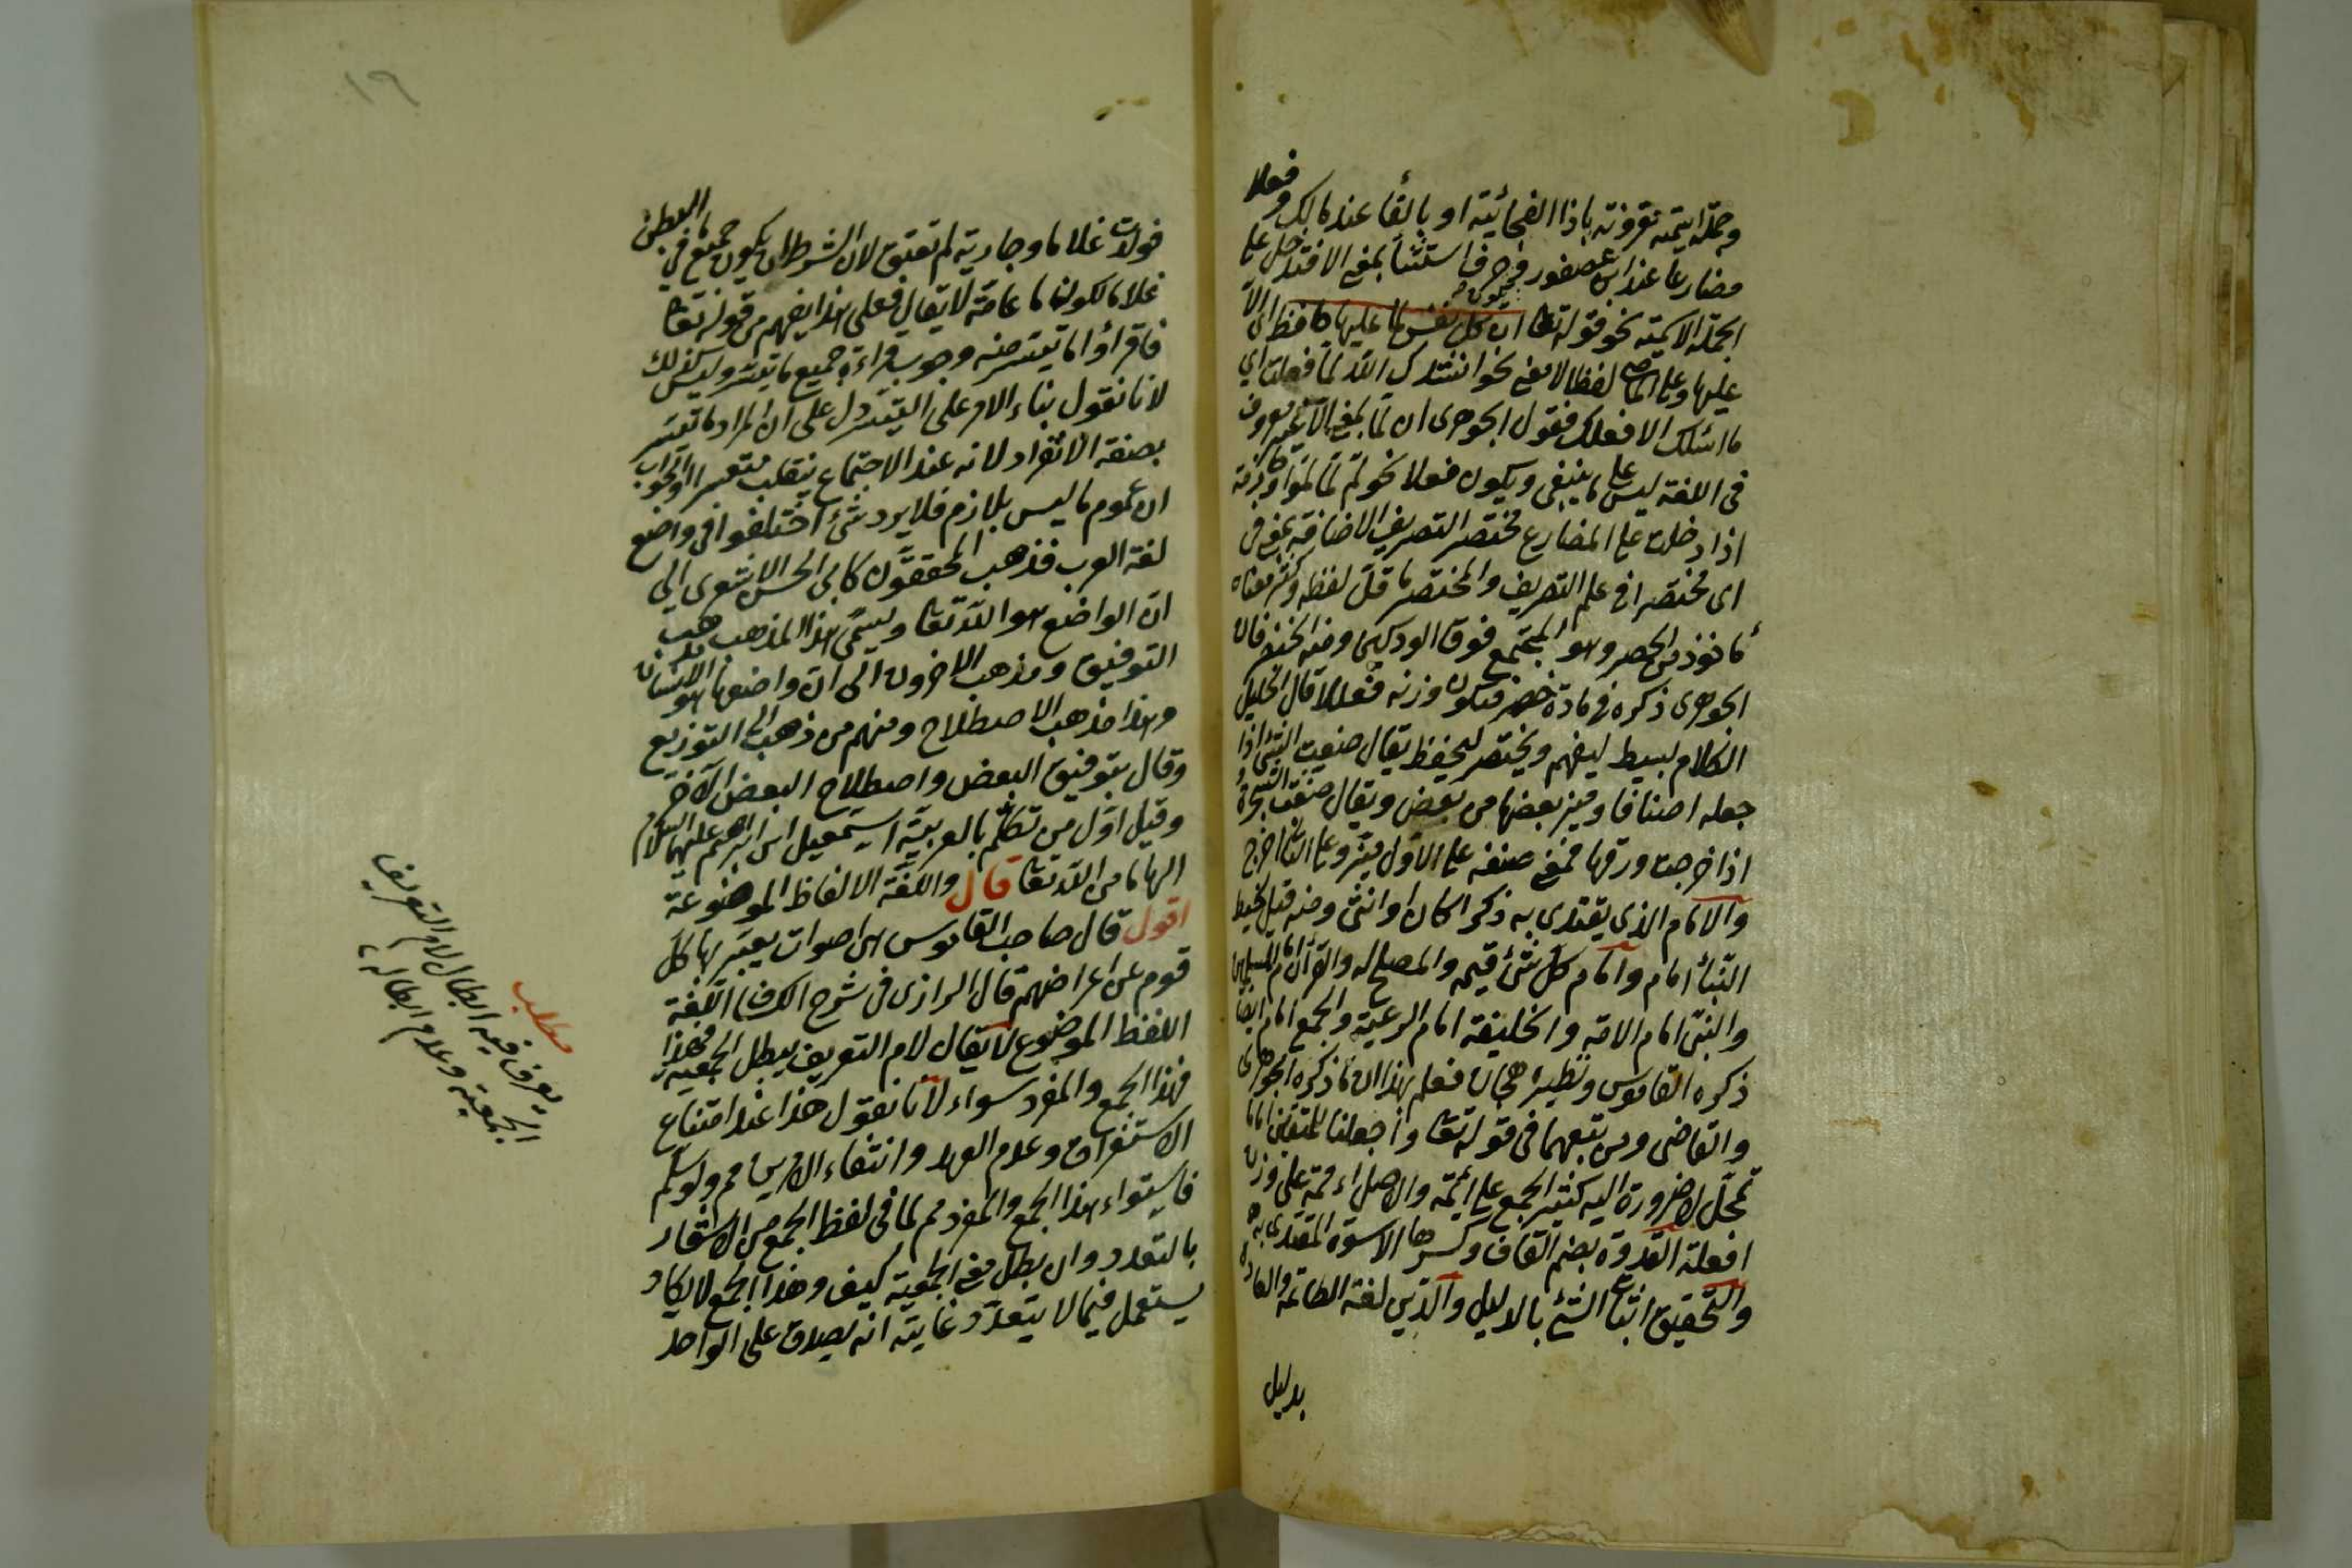 وجملة اسمية مقرونة باذا الفجائية او بالفا عند مالك وفعلا
مضارعا عند ابن عصفور وحرف استثنا بمعنى الا فتدخل على
الجملة الاسمية نحو قوله تعا ان كل نفس لما عليها حافظ اى الا
عليها وعلى الماضى لفظا لا معنى نحو انشدك الله لما فعلت اي
ما اسئلك الا فعلك فقول الجوهرى ان لما بمعنى الا غير معروف
فى اللغة ليس على ما ينبغى ويكون فعلا نحو لم لما لموا وجازمة
اذا دخلت على المضارع مختصر التصريف الاضافة بمعنى فى
اى مختصرا فى علم التصريف والمختصر ما قل لفظه وكثر معناه
مأخوذ من الخصر وهو المجتمع فوق الوركين ومنه الخنصر فان
الجوهرى ذكره فى مادة خصر فيكون وزنه فنعلا قال الخليل
الكلام يبسط ليفهم ويختصر ليحفظ يقال صنفت الشئ اذا
جعله اصنافا وميز بعضها من بعض ويقال صنفت الشجرة
اذا خرجت ورقها فمعنى صنفه على الاول ميز وعلى الثانى اخرج
والامام الذى يقتدى به ذكرا كان او انثى ومنه قيل لخيط
البناء امام وامام كل شئ قيمه والمصلح له والقرآن امام المسلمين
والنبى امام الامة والخليفة امام الرعية والجمع امام ايضا
ذكره القاموس ونظيره هجان فعلم بهذا ان ما ذكره الجوهرى
والقاضى ومن تبعهما فى قوله تعا واجعلنا للمتقين اماما
تمحل لا ضرورة اليه كثير الجمع على ائمة والاصل اءممة على وزن
افعلة القدوة بضم القاف وكسرها الاسوة المقتدى به
والتحقيق اثبات الشئ بالدليل والدين لغة الطاعة والعادة
بديل
١٩
فولدت غلاما وجارية لم تعتق لان الشرط ان يكون جميع ما فى البطن
غلاما لكون ما عامة لا يقال فعلى هذا يفهم من قوله تعا
فاقرأوا ما تيسر منه وجوب قراءة جميع ما تيسر وليس كذلك
لانا نقول بناء الامر على التيسر دل على ان المراد ما تيسر
بصفة الانفراد لانه عند الاجتماع ينقلب متعسرا او الجواب
ان عموم ما ليس بلازم فلا يرد شئ اختلفوا فى واضع
لغة العرب فذهب المحققون كابى الحسن الاشعرى الى
ان الواضع هو الله تعا ويسمى هذا المذهب مذهب
التوقيف وذهب الاخرون الى ان واضعها هو الانسان
وهذا مذهب الاصطلاح ومنهم من ذهب الى التوزيع
وقال بتوقيف البعض واصطلاح البعض الآخر
وقيل اول من تكلم بالعربية اسمعيل ابن ابراهيم عليهما السلام
الهاما من الله تعا قال واللغة الالفاظ الموضوعة
اقول قال صاحب القاموس هى اصوات يعبر بها كل
قوم عن اغراضهم قال الرازى فى شرح الكشاف اللغة
اللفظ الموضوع لا يقال لام التعريف يبطل الجمعية فهذا
فهذا الجمع والمفرد سواء لانا نقول هذا عند امتناع
الاستغراق وعدم العهد وانتفاء الامرين مم ولو سلم
فاستواء هذا الجمع والمفرد مم لما فى لفظ الجمع من الاشعار
بالتعدد وان بطل معنى الجمعية كيف وهذا الجمع لا يكاد
يستعمل فيما لا يتعدد غايته انه يصدق على الواحد
مطلب
يعرف فيه ابطال لام التعريف
الجمعية وعدم ابطاله